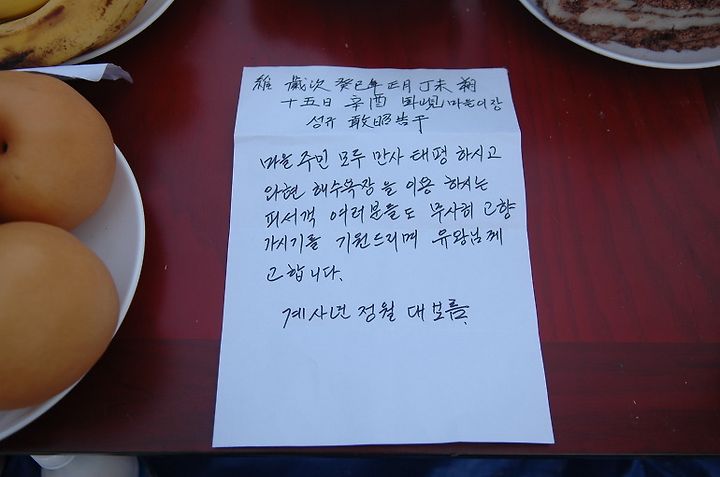 維 歲次 癸巳年 正月 丁未 朔
十五日 辛酉 臥峴 마을이장
성규 敢昭告于
마을 주민 모두 만사 태평 하시고
와현 해수욕장 을 이용 하시는
피서객 여러분들도 무사히 고향
가시기를 기원드리며 유왕님께
고합니다.
계사년 정월 대보름.